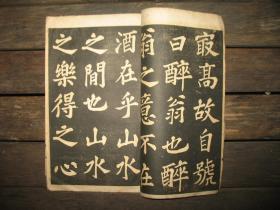 最高故自號
曰醉翁也醉
翁之意不在
酒在乎山水
之間也山水
之樂得之心